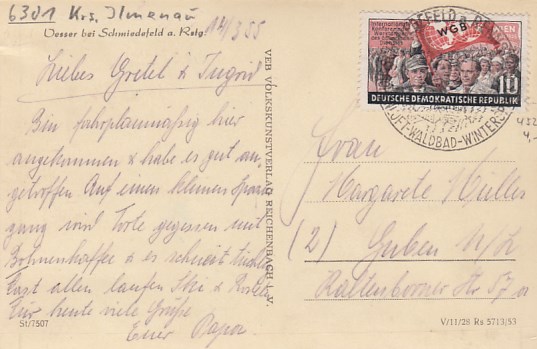 6301 Krs. Ilmenau
Vesser bei Schmiedefeld a. Rstg.
14/3 55
Liebes Gretel & Ingrid
Bin fahrplanmäßig hier
angekommen & habe es gut an-
getroffen Auf einen kleinen Spazier
gang wird Torte gegessen mit
Bohnenkaffee & es schneit tüchtig
Fast allen laufen Ski & Rodeln
Für heute viele Grüße
Euer Papa
St/7507
VEB VOLKSKUNSTVERLAG REICHENBACH I. V.
INTERNATIONALE
WGB
10
DEUTSCHE DEMOKRATISCHE REPUBLIK
LUFT-WALDBAD-WINTERS
432
4,-
Frau
Margarete Müller
(2) Guben N/L
Kaltenborner Str 57a
V/11/28 Rs 5713/53